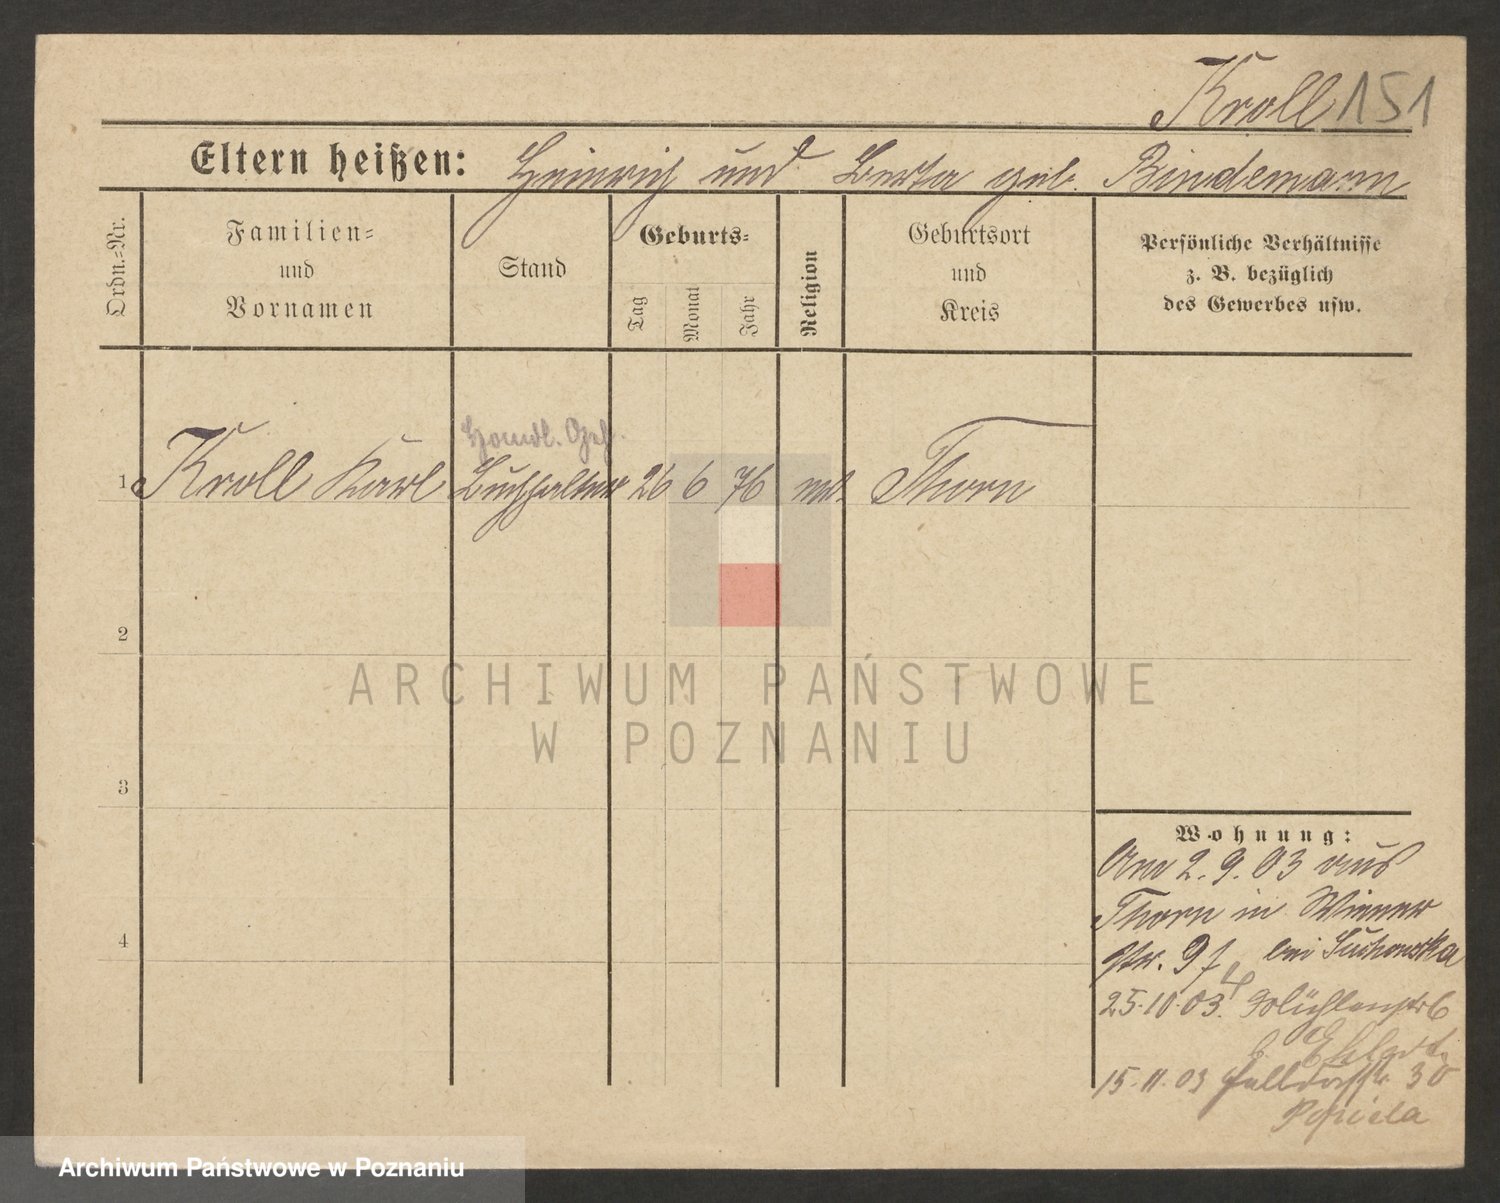 Kroll 151
Eltern heißen: Heinrich und Berta geb. Bindemann
Ordn.-Nr.
Familien-
und
Vornamen
Stand
Geburts-
Tag
Monat
Jahr
Religion
Geburtsort
und
Kreis
Persönliche Verhältnisse
z. B. bezüglich
des Gewerbes usw.
Handl. Geh.
1 Kroll Karl Buchhalter 26 6 76 Thorn
2
ARCHIWUM PAŃSTWOWE
W POZNANIU
3
4
Wohnung:
Am 2.9.03 aus
Thorn in Wiener
str. 9 bei Suchowska
25.10.03.
15.11.03 30
Popiela
Archiwum Państwowe w Poznaniu